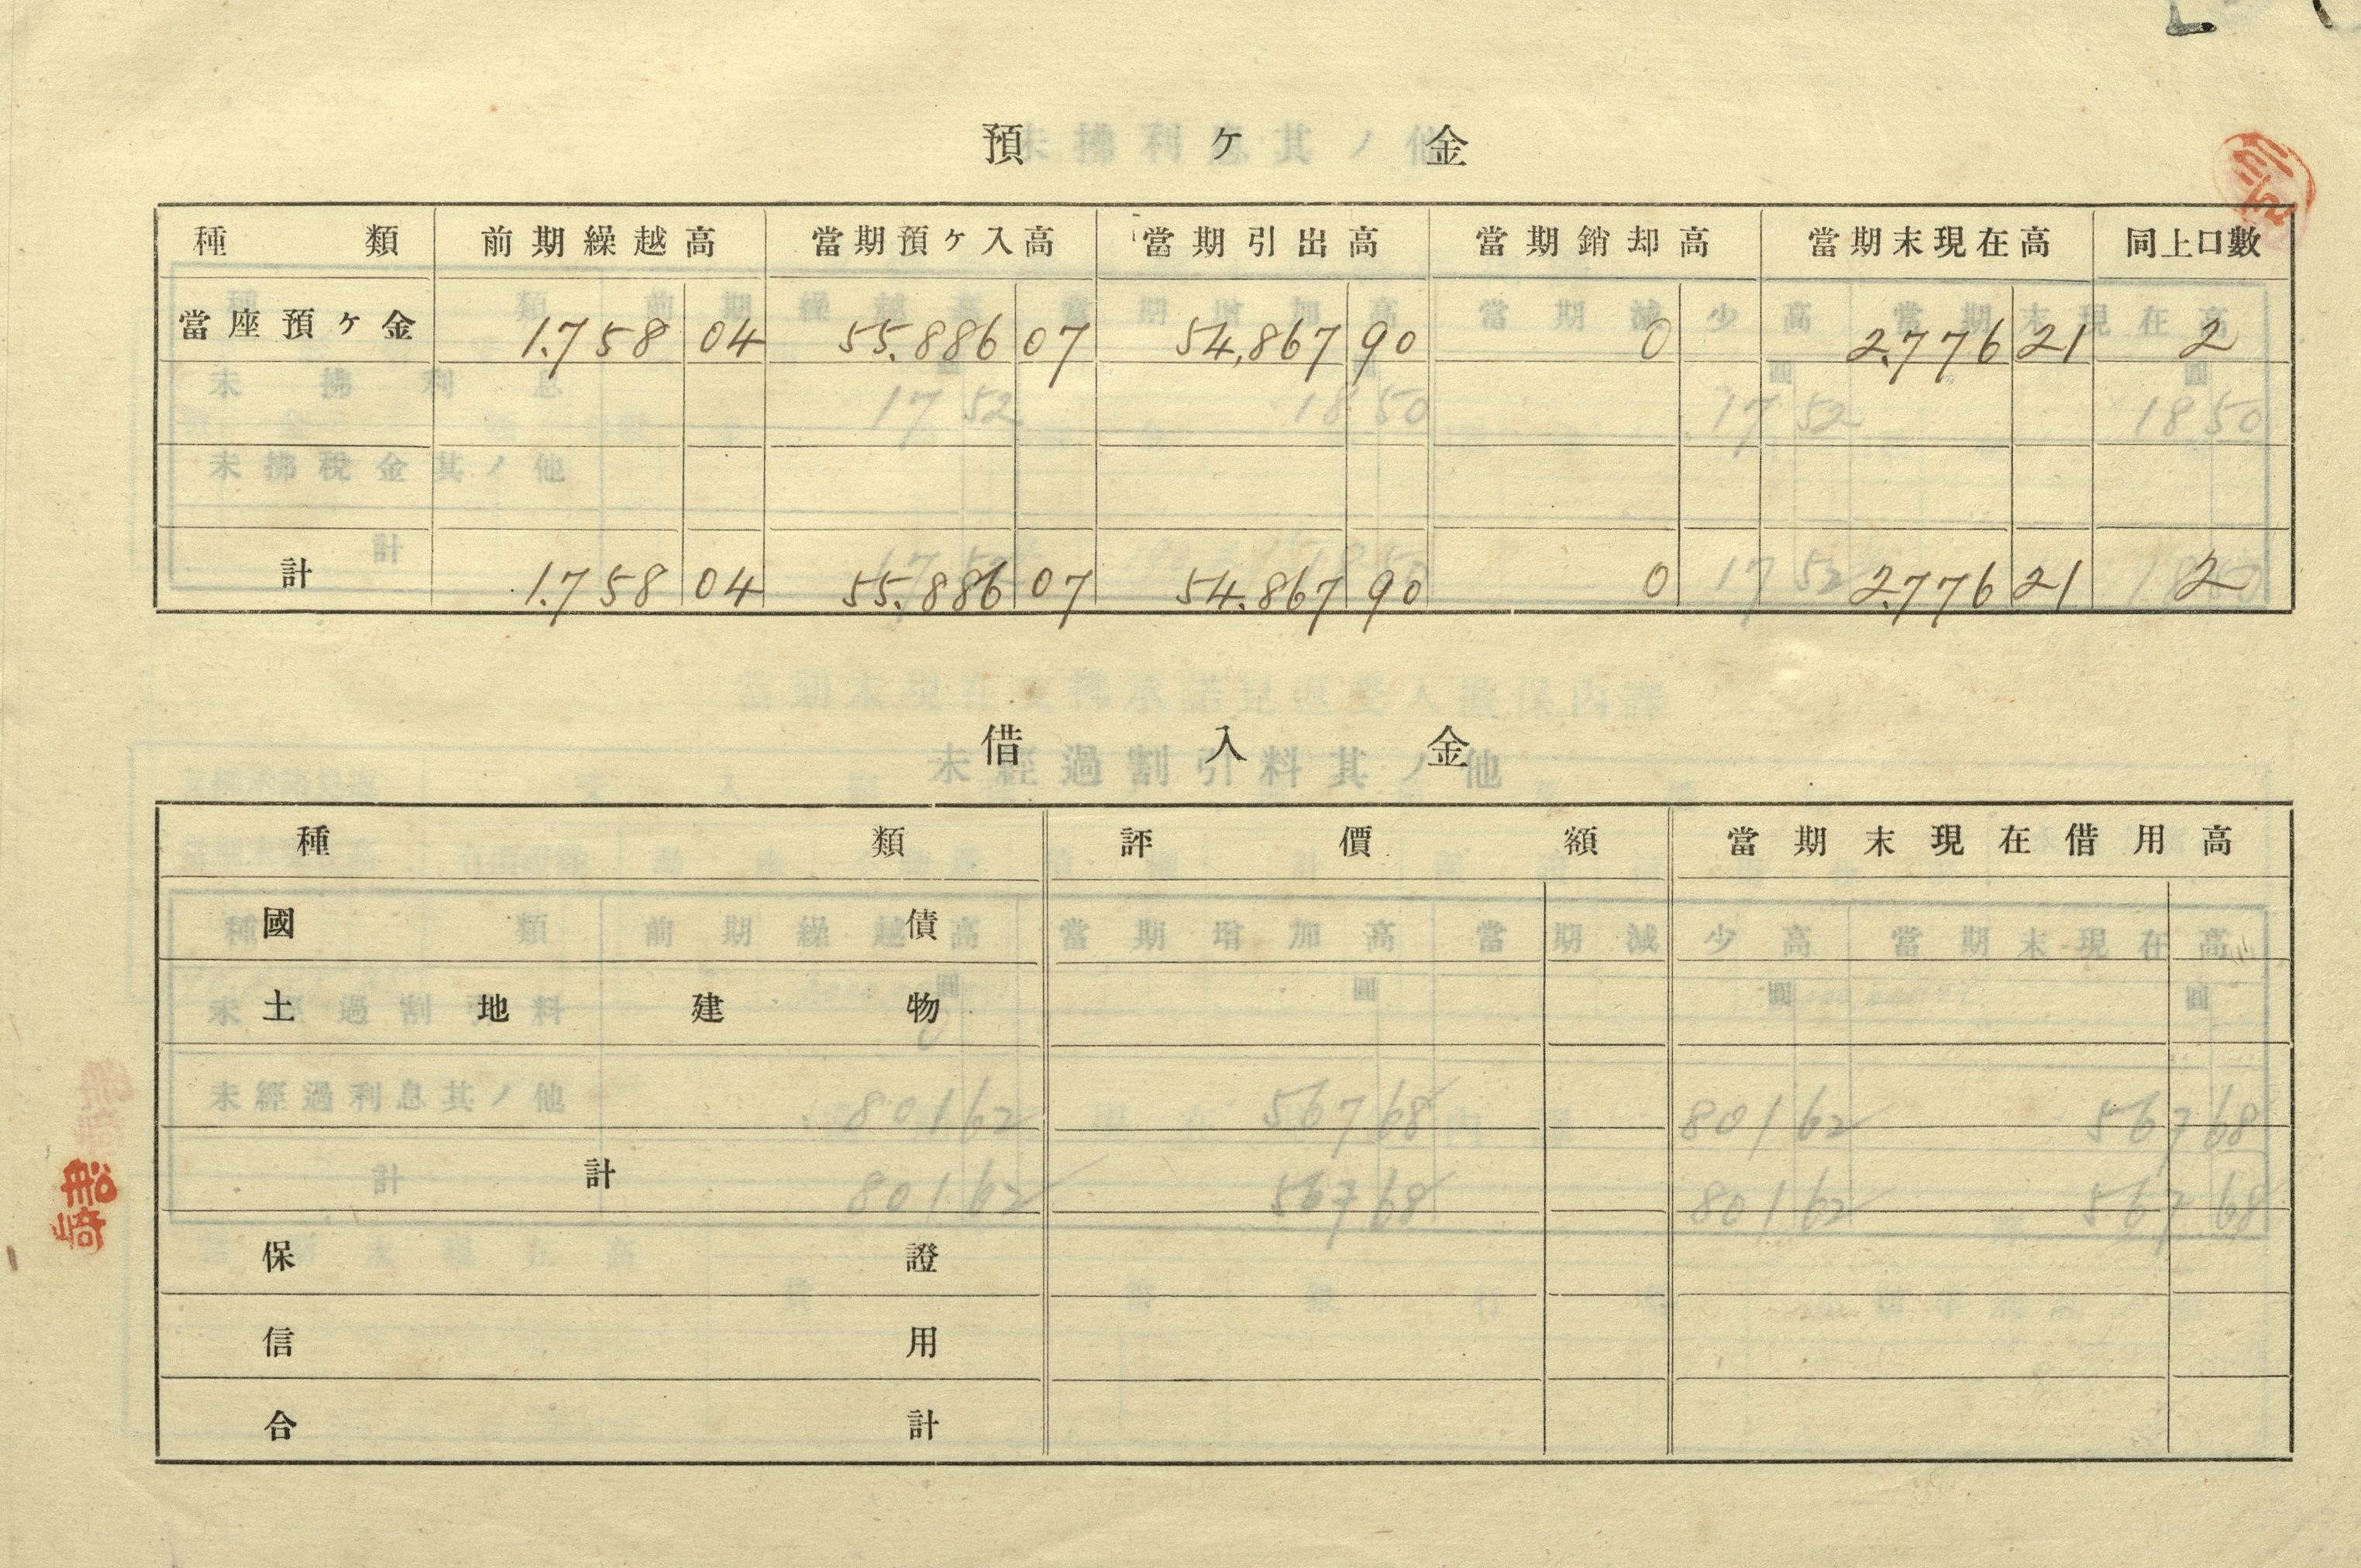 預ケ金
種類 前期繰越高 當期預ケ入高 當期引出高 當期銷却高 當期末現在高 同上口數
當座預ケ金 1.758 04 55.886 07 54,867 90 0 2.776 21 2
計 1.758 04 55.886 07 54.867 90 0 2.776 21 2
借入金
種類 評價額 當期末現在借用高
國債
土地建物
計
保證
信用
合計